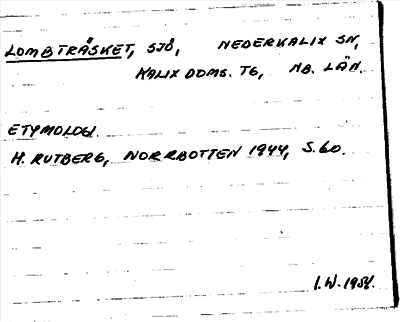 LOMBTRÄSKET, SJÖ, NEDERKALIX SN,
KALIX DOMS. TG, NB. LÄN.
ETYMOLOGI.
H. RUTBERG, NORRBOTTEN 1944, S. 60.
I.W. 1951.